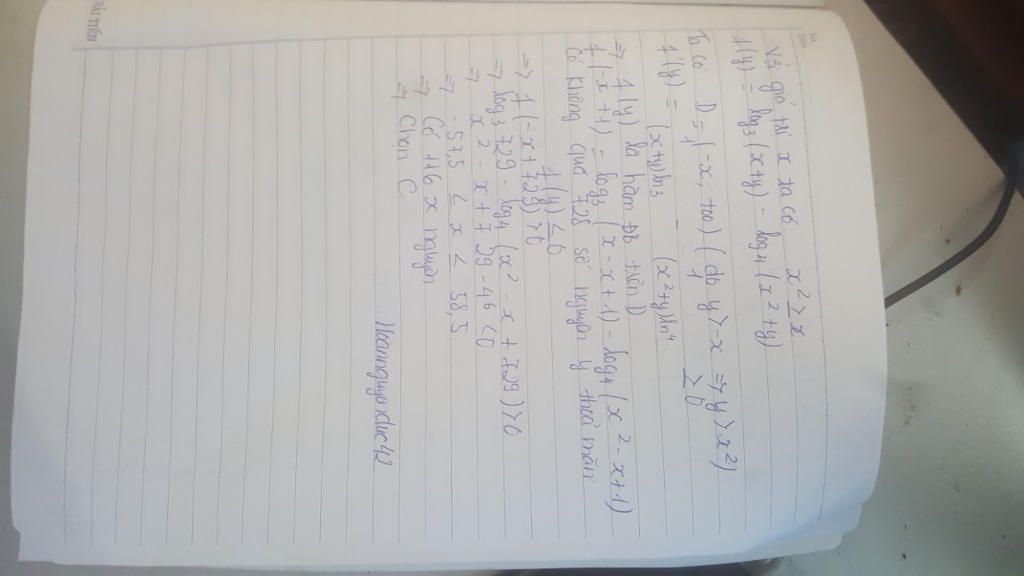 HẢI TIẾN
Với giá trị x ta có x² ≥ x
f(y) = log₃(x+y) - log₄(x²+y)
Ta có D = (-x; +∞) (do y > -x => y > x²)
f'(y) = 1/((x+y)ln3) - 1/((x²+y)ln4) ≥ 0
=> f(y) là hàm ĐB trên D
f(-x+1) = log₃(x-x+1) - log₄(x²-x+1)
Có không quá 728 số nguyên y thoả mãn
f(y) ≤ 0
=> f(-x+729) > 0
=> log₃ 729 - log₄(x² - x + 729) > 0
=> x² - x + 729 - 4⁶ < 0
=> -57,5 ≤ x ≤ 58,5
=> Có 116 x nguyên
=> Chọn C